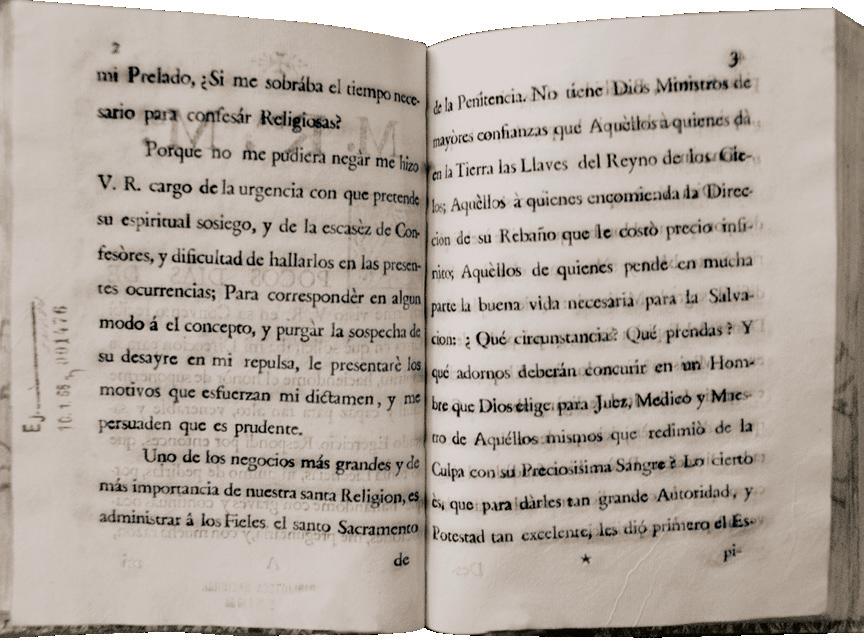 2
mi Prelado, ¿Si me sobrába el tiempo nece-
sario para confesár Religiosas?
Porque no me pudiera negàr me hizo
V. R. cargo de la urgencia con que pretende
su espiritual sosiego, y de la escasèz de Con-
fesòres, y dificultad de hallarlos en las presen-
tes ocurrencias; Para correspondèr en algun
modo á el concepto, y purgar la sospecha de
su desayre en mi repulsa, le presentarè los
motivos que esfuerzan mi dictamen, y me
persuaden que es prudente.
Uno de los negocios más grandes y de
más importancia de nuestra santa Religion, es
administrar á los Fieles el santo Sacramento
de
EJ.
10.1.66 001476
3
de la Penitencia. No tiene Dios Ministros de
mayòres confianzas que Aquèllos à quienes dà
en la Tierra las Llaves del Reyno de los Cie-
los; Aquèllos à quienes encomienda la Direc-
cion de su Rebaño que le costò precio infi-
nito; Aquèllos de quienes pende en mucha
parte la buena vida necesaria para la Salva-
cion: ¿ Qué circunstancia? Qué prendas? Y
qué adornos deberán concurir en un Hom-
bre que Dios elige para Juez, Medico y Maes-
tro de Aquéllos mismos que redimiò de la
Culpa con su Preciosisima Sangre? Lo cierto
es, que para dárles tan grande Autoridad, y
Potestad tan excelente, les dió primero el Es-
★ pi-